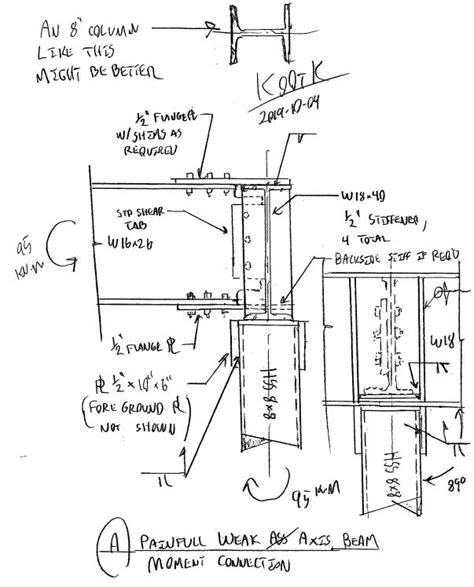 AN 8" COLUMN
LIKE THIS
MIGHT BE BETTER
KootK
2019-10-04
1/2" FLANGE PL
W/ SHIMS AS
REQUIRED
W18x40
STD SHEAR
TAB
1/2" STIFFENER,
4 TOTAL
W16x26
BACKSIDE STIFF IF REQD
95
KN·M
W18
1/2" FLANGE PL
PL 1/2" x 10" x 6"
(FOREGROUND PL
NOT SHOWN)
HSS 8x8
HSS 8x8
95 KN·M
890
A
PAINFULL WEAK AXIS BEAM
MOMENT CONNECTION